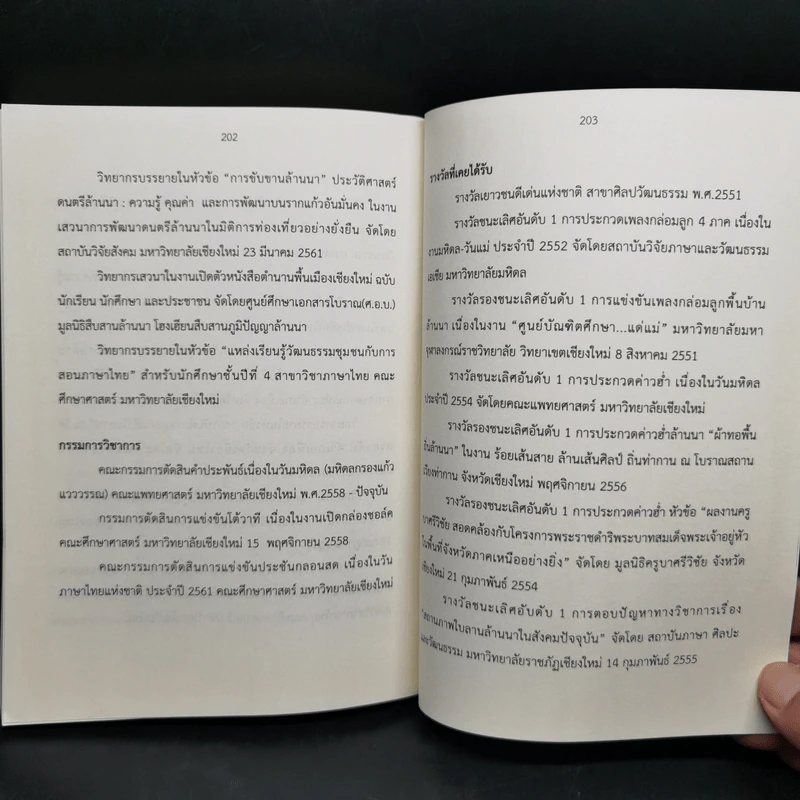 202
วิทยากรบรรยายในหัวข้อ “การขับขานล้านนา” ประวัติศาสตร์
ดนตรีล้านนา : ความรู้ คุณค่า และการพัฒนาบนรากแก้วอันมั่นคง ในงาน
เสวนาการพัฒนาดนตรีล้านนาในมิติการท่องเที่ยวอย่างยั่งยืน จัดโดย
สถาบันวิจัยสังคม มหาวิทยาลัยเชียงใหม่ 23 มีนาคม 2561
วิทยากรเสวนาในงานเปิดตัวหนังสือตำนานพื้นเมืองเชียงใหม่ ฉบับ
นักเรียน นักศึกษา และประชาชน จัดโดยศูนย์ศึกษาเอกสารโบราณ(ศ.อ.บ.)
มูลนิธิสืบสานล้านนา โฮงเฮียนสืบสานภูมิปัญญาล้านนา
วิทยากรบรรยายในหัวข้อ “แหล่งเรียนรู้วัฒนธรรมชุมชนกับการ
สอนภาษาไทย” สำหรับนักศึกษาชั้นปีที่ 4 สาขาวิชาภาษาไทย คณะ
ศึกษาศาสตร์ มหาวิทยาลัยเชียงใหม่
กรรมการวิชาการ
คณะกรรมการตัดสินคำประพันธ์เนื่องในวันมหิดล (มหิดลกรองแก้ว
แวววรรณ) คณะแพทยศาสตร์ มหาวิทยาลัยเชียงใหม่ พ.ศ.2558 - ปัจจุบัน
กรรมการตัดสินการแข่งขันโต้วาที เนื่องในงานเปิดกล่องชอล์ค
คณะศึกษาศาสตร์ มหาวิทยาลัยเชียงใหม่ 15 พฤศจิกายน 2558
คณะกรรมการตัดสินการแข่งขันประชันกลอนสด เนื่องในวัน
ภาษาไทยแห่งชาติ ประจำปี 2561 คณะศึกษาศาสตร์ มหาวิทยาลัยเชียงใหม่
203
รางวัลที่เคยได้รับ
รางวัลเยาวชนดีเด่นแห่งชาติ สาขาศิลปวัฒนธรรม พ.ศ.2551
รางวัลชนะเลิศอันดับ 1 การประกวดเพลงกล่อมลูก 4 ภาค เนื่องใน
งานมหิดล-วันแม่ ประจำปี 2552 จัดโดยสถาบันวิจัยภาษาและวัฒนธรรม
เอเชีย มหาวิทยาลัยมหิดล
รางวัลรองชนะเลิศอันดับ 1 การแข่งขันเพลงกล่อมลูกพื้นบ้าน
ล้านนา เนื่องในงาน “ศูนย์บัณฑิตศึกษา...แด่แม่” มหาวิทยาลัยมหา
จุฬาลงกรณ์ราชวิทยาลัย วิทยาเขตเชียงใหม่ 8 สิงหาคม 2551
รางวัลชนะเลิศอันดับ 1 การประกวดค่าวฮ่ำ เนื่องในวันมหิดล
ประจำปี 2554 จัดโดยคณะแพทยศาสตร์ มหาวิทยาลัยเชียงใหม่
รางวัลรองชนะเลิศอันดับ 1 การประกวดค่าวฮ่ำล้านนา “ผ้าทอพื้น
ถิ่นล้านนา” ในงาน ร้อยเส้นสาย ล้านเส้นศิลป์ ถิ่นท่ากาน ณ โบราณสถาน
เวียงท่ากาน จังหวัดเชียงใหม่ พฤศจิกายน 2556
รางวัลรองชนะเลิศอันดับ 1 การประกวดค่าวฮ่ำ หัวข้อ “ผลงานครู
บาศรีวิชัย สอดคล้องกับโครงการพระราชดำริพระบาทสมเด็จพระเจ้าอยู่หัว
ในพื้นที่จังหวัดภาคเหนืออย่างยิ่ง” จัดโดย มูลนิธิครูบาศรีวิชัย จังหวัด
เชียงใหม่ 21 กุมภาพันธ์ 2554
รางวัลชนะเลิศอันดับ 1 การตอบปัญหาทางวิชาการเรื่อง
“สถานภาพใบลานล้านนาในสังคมปัจจุบัน” จัดโดย สถาบันภาษา ศิลปะ
และวัฒนธรรม มหาวิทยาลัยราชภัฏเชียงใหม่ 14 กุมภาพันธ์ 2555